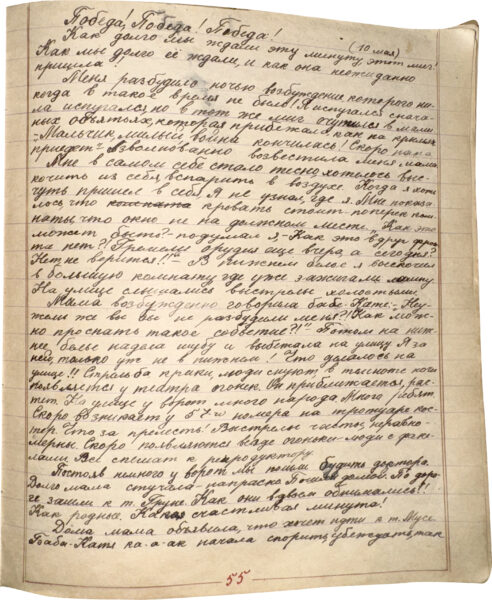 Победа! Победа! Победа!
Как долго мы ждали эту минуту, этот миг!
(10 мая)
Как мы долго её ждали, и как она неожиданно
пришла!
Меня разбудило ночью возбуждение которого ни-
когда в такое время не было! Я испугался снача-
ла испугался, но в тот же миг очутился в мами-
ных объятьях, которая прибежала как на крыльях
"Мальчик, милый война кончилась! Скоро папа
приедет" взволнованно возвестила меня мама
Мне в самом себе стало тесно хотелось выс-
кочить из себя, вспарить в воздухе. Когда я хоть
чуть пришел в себя. Я не узнал, где я. Мне показа-
лось, что комната кровать стоит поперек ком-
наты, что окно не на должном месте. "Как это
может быть?- подумал я,- Как это вдруг фрон-
та нет?! Гремели орудия еще вчера, а сегодня?
Нет, не верится!!" В нижнем белье я поскочил
в большую комнату где уже зажигали лампу
На улице слышались выстрелы холостыми
Мама возбужденно говорила бабе-Кате:-Неу-
жели же вы бы не разбудили меня?! Как мож-
но проспать такое событие?!" Потом на ниж-
нее белье надела шубу и выбежала на улицу Я за
ней, только уж не в нижнем! Что делалось на
улице!! Стрельба крики, люди снуют в темноте
появляется у театра огонек. Он приближается, рас-
тет. На улице у ворот много народа. Много ребят
Скоро возникает у 57го номера на тротуаре кос-
тер. Что за прелесть! Выстрелы часты, неравно-
мерны. Скоро появляются везде огоньки-люди с факе-
лами Все спешат к репродуктору.
Постояв немного у ворот мы пошли будить доктора.
Долго мама стучала-напрасно Пошли домой. По доро-
ге зашли к т. Груне. Как они вдвоем обнимались!!
Как родные. Какая счастливая минута!
Дома мама объявила, что хочет идти к т. Мусе.
Баба-Катя ка-а-ак начала спорить, убеждать, так
55